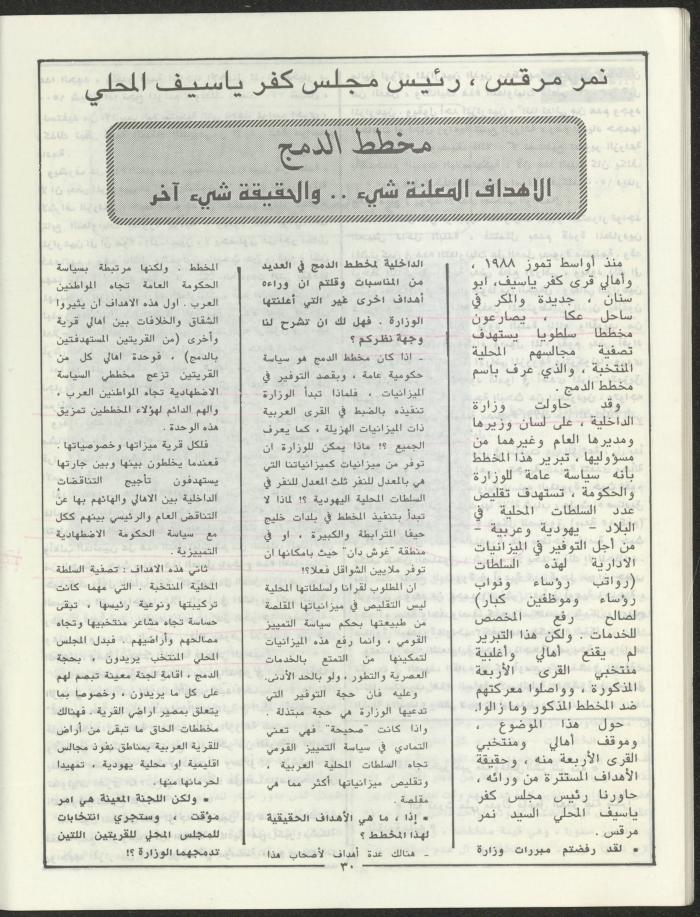 نمر مرقس ، رئيس مجلس كفر ياسيف المحلي
مخطط الدمج
الاهداف المعلنة شيء .. والحقيقة شيء آخر
منذ أواسط تموز ١٩٨٨ ،
وأهالي قرى كفر ياسيف، ابو
سنان ، جديدة والمكر في
ساحل عكا ، يصارعون
مخططا سلطويا يستهدف
تصفية مجالسهم المحلية
المنتخبة ، والذي عرف باسم
مخطط الدمج .
وقد حاولت وزارة
الداخلية ، على لسان وزيرها
ومديرها العام وغيرهما من
مسؤوليها ، تبرير هذا المخطط
بأنه سياسة عامة للوزارة
والحكومة ، تستهدف تقليص
عدد السلطات المحلية في
البلاد – يهودية وعربية –
من أجل التوفير في الميزانيات
الادارية لهذه السلطات
(رواتب رؤساء ونواب
رؤساء وموظفين كبار)
لصالح رفع المخصص
للخدمات . ولكن هذا التبرير
لم يقنع أهالي وأغلبية
منتخبي القرى الأربعة
المذكورة ، وواصلوا معركتهم
ضد المخطط المذكور وما زالوا.
حول هذا الموضوع ،
وموقف أهالي ومنتخبي
القرى الأربعة منه ، وحقيقة
الأهداف المستترة من ورائه ،
حاورنا رئيس مجلس كفر
ياسيف المحلي السيد نمر
مرقس .
• لقد رفضتم مبررات وزارة
الداخلية لمخطط الدمج في العديد
من المناسبات وقلتم ان وراءه
أهداف اخرى غير التي أعلنتها
الوزارة . فهل لك ان تشرح لنا
وجهة نظركم ؟
ـ اذا كان مخطط الدمج هو سياسة
حكومية عامة ، وبقصد التوفير في
الميزانيات ، فلماذا تبدأ الوزارة
تنفيذه بالضبط في القرى العربية
ذات الميزانيات الهزيلة ، كما يعرف
الجميع ؟! ماذا يمكن للوزارة ان
توفر من ميزانيات كميزانياتنا التي
هي بالمعدل للنفر ثلث المعدل للنفر في
السلطات المحلية اليهودية ؟! لماذا لا
تبدأ بتنفيذ المخطط في بلدات خليج
حيفا المترابطة والكبيرة ، او في
منطقة "غوش دان" حيث بامكانها ان
توفر ملايين الشواقل فعلا؟!
ان المطلوب لقرانا ولسلطاتها المحلية
ليس التقليص في ميزانياتها المقلصة
من طبيعتها بحكم سياسة التمييز
القومي ، وانما رفع هذه الميزانيات
لتمكينها من التمتع بالخدمات
العصرية والتطور ، ولو بالحد الأدنى.
وعليه فان حجة التوفير التي
تدعيها الوزارة هي حجة مبتذلة .
واذا كانت "صحيحة" فهي تعني
التمادي في سياسة التمييز القومي
تجاه السلطات المحلية العربية ،
وتقليص ميزانياتها أكثر مما هي
مقلصة .
• إذا ، ما هي الأهداف الحقيقية
لهذا المخطط ؟
ـ هنالك عدة أهداف لأصحاب هذا
المخطط . ولكنها مرتبطة بسياسة
الحكومة العامة تجاه المواطنين
العرب . اول هذه الاهداف ان يثيروا
الشقاق والخلافات بين اهالي قرية
وأخرى (من القريتين المستهدفتين
بالدمج) ، فوحدة اهالي كل من
القريتين تزعج مخططي السياسة
الاضطهادية تجاه المواطنين العرب ،
والهم الدائم لهؤلاء المخططين تمزيق
هذه الوحدة .
فلكل قرية ميزاتها وخصوصياتها .
فعندما يخلطون بينها وبين جارتها
يستهدفون تأجيج التناقضات
الداخلية بين الاهالي والهائهم بها عن
التناقض العام والرئيسي بينهم ككل
مع سياسة الحكومة الاضطهادية
التمييزية .
ثاني هذه الاهداف : تصفية السلطة
المحلية المنتخبة . التي مهما كانت
تركيبتها ونوعية رئيسها ، تبقى
حساسة تجاه مشاعر منتخبيها وتجاه
مصالحهم وأراضيهم . فبدل المجلس
المحلي المنتخب يريدون ، بحجة
الدمج ، اقامة لجنة معينة تبصم لهم
على كل ما يريدون ، وخصوصا بما
يتعلق بمصير اراضي القرية . فهنالك
مخططات الحاق ما تبقى من أراض
للقرية العربية بمناطق نفوذ مجالس
اقليمية او محلية يهودية ، تمهيدا
لحرمانها منها .
• ولكن اللجنة المعينة هي امر
مؤقت ، وستجري انتخابات
للمجلس المحلي للقريتين اللتين
تدمجهما الوزارة ؟!
٣٠